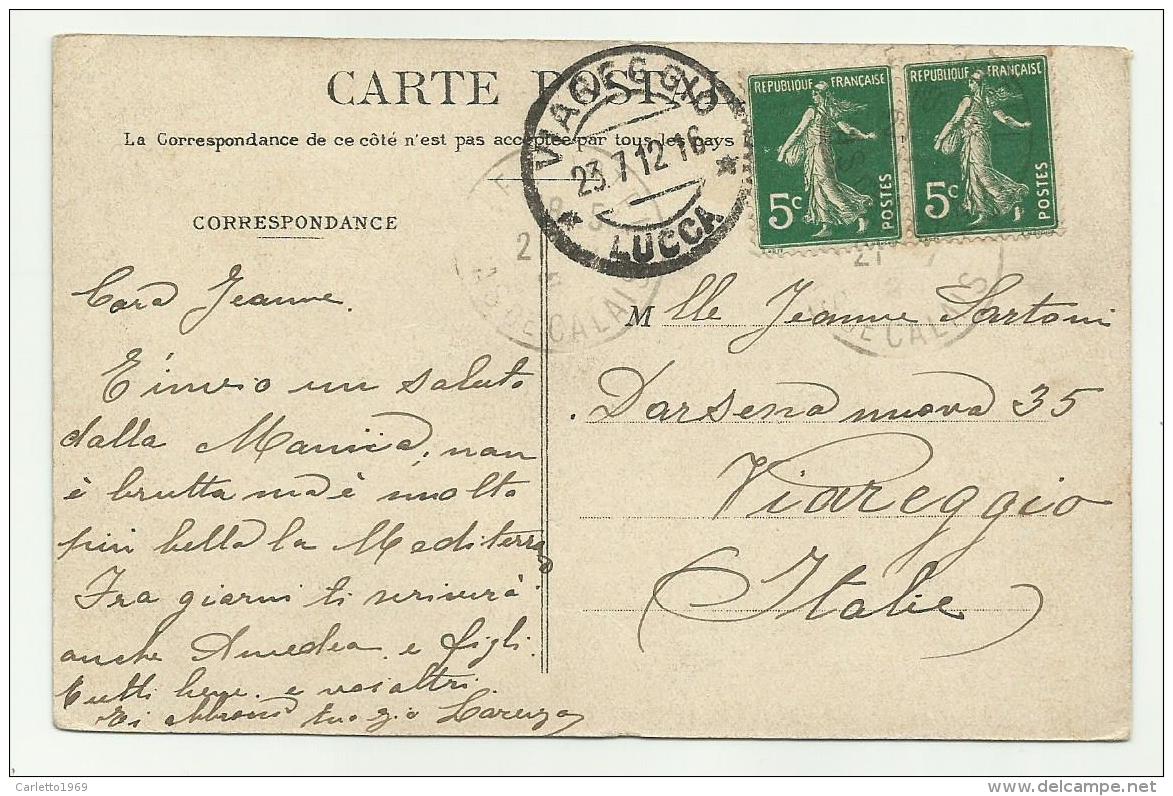 CARTE POST
La Correspondance de ce côté n'est pas acceptée par tous les pays
CORRESPONDANCE
VIAREGGIO
23.7.12.16
LUCCA
REPUBLIQUE FRANÇAISE
5c
POSTES
REPUBLIQUE FRANÇAISE
5c
POSTES
DE CALAIS
21
DE CALAIS
Cara Jeanne.
T'invio un saluto
dalla Manica, non
è brutta ma è molto
più bella la Mediterraneo
Fra giorni ti scriverà
anche Amedea e figli.
Tutti bene e voialtri.
Ti abbraccia tuo zio Lorenzo
Mlle Jeanne Sartoni
Darsena nuova 35
Viareggio
Italie
Carletto1969
delcampe.net